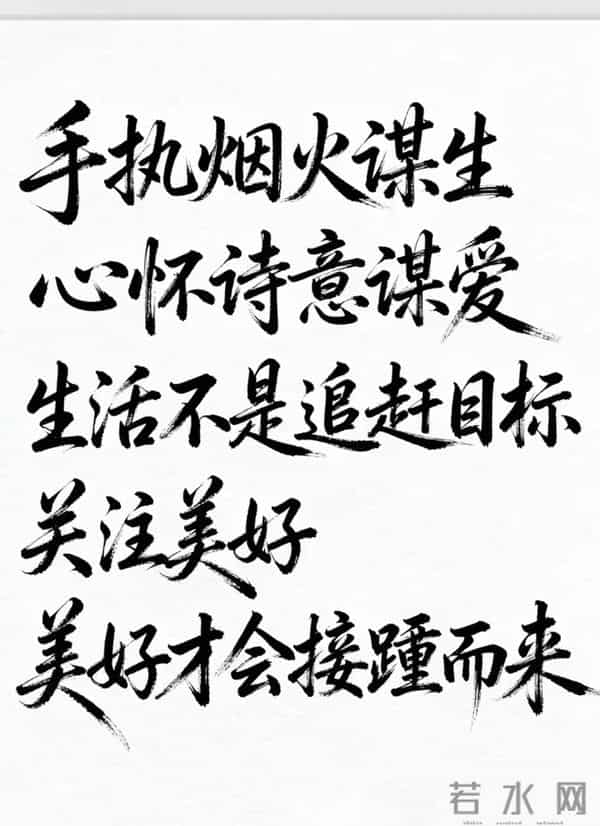 手执烟火谋生
心怀诗意谋爱
生活不是追赶目标
关注美好
美好才会接踵而来
若水网